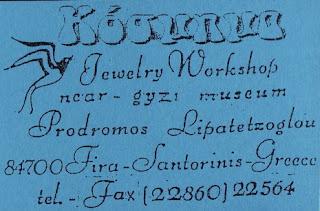 Κόσμημα
Jewelry Workshop
near - gyzi museum
Prodromos Lipatetzoglou
84700 Fira - Santorinis - Greece
tel. - Fax (22860) 22564